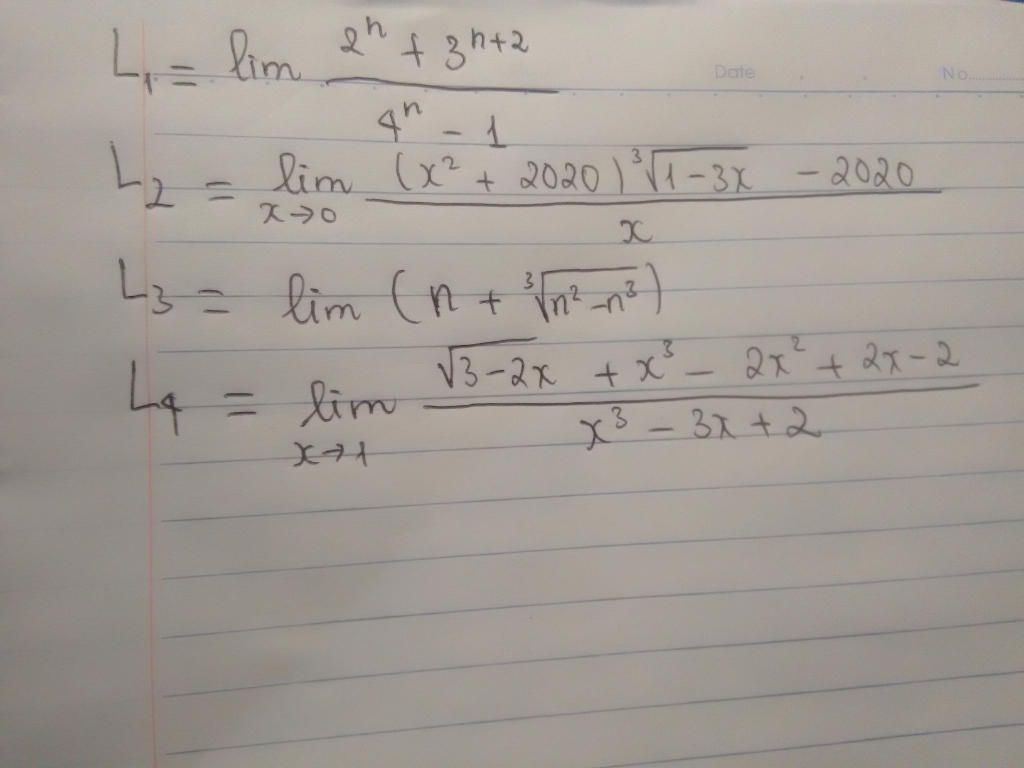 Date No.
L₁ = lim (2ⁿ + 3ⁿ⁺²)/(4ⁿ - 1)
L₂ = lim x→0 ((x² + 2020) ∛(1-3x) - 2020)/x
L₃ = lim (n + ∛(n² - n³))
L₄ = lim x→1 (√(3-2x) + x³ - 2x² + 2x - 2)/(x³ - 3x + 2)